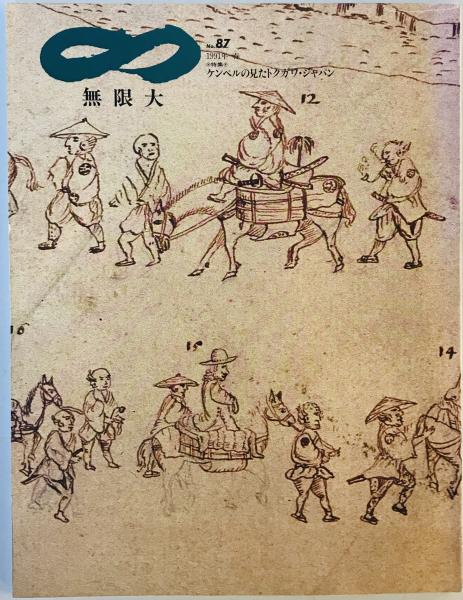 No. 87
1991年 春
●特集●
ケンペルの見たトクガワ・ジャパン
無限大
12
16
15
14